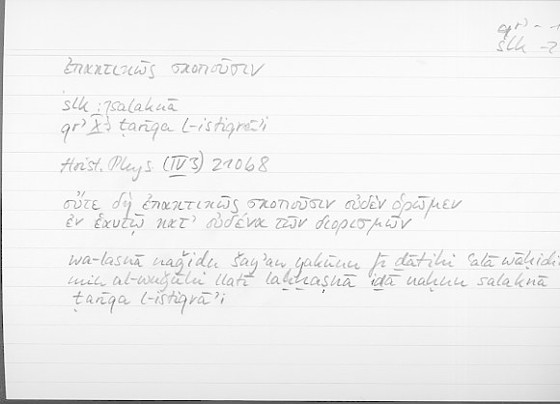 qrʾ - 1
slk - 2
ἐπακτικῶς σκοποῦσιν
slk : salaknā
qrʾ X ṭarīqa l-istiqrāʾi
Arist. Phys. (IV 3) 210b8
οὔτε δὴ ἐπακτικῶς σκοποῦσιν οὐδὲν ὁρῶμεν
ἐν ἑαυτῷ κατ' οὐδένα τῶν διορισμῶν
wa-lasnā naǧidu šayʾan yakūnu fī ḏātihi ʿalā wāḥidin
min al-wuǧūhi llatī laḫḫaṣnā iḏā naḥnu salaknā
ṭarīqa l-istiqrāʾi